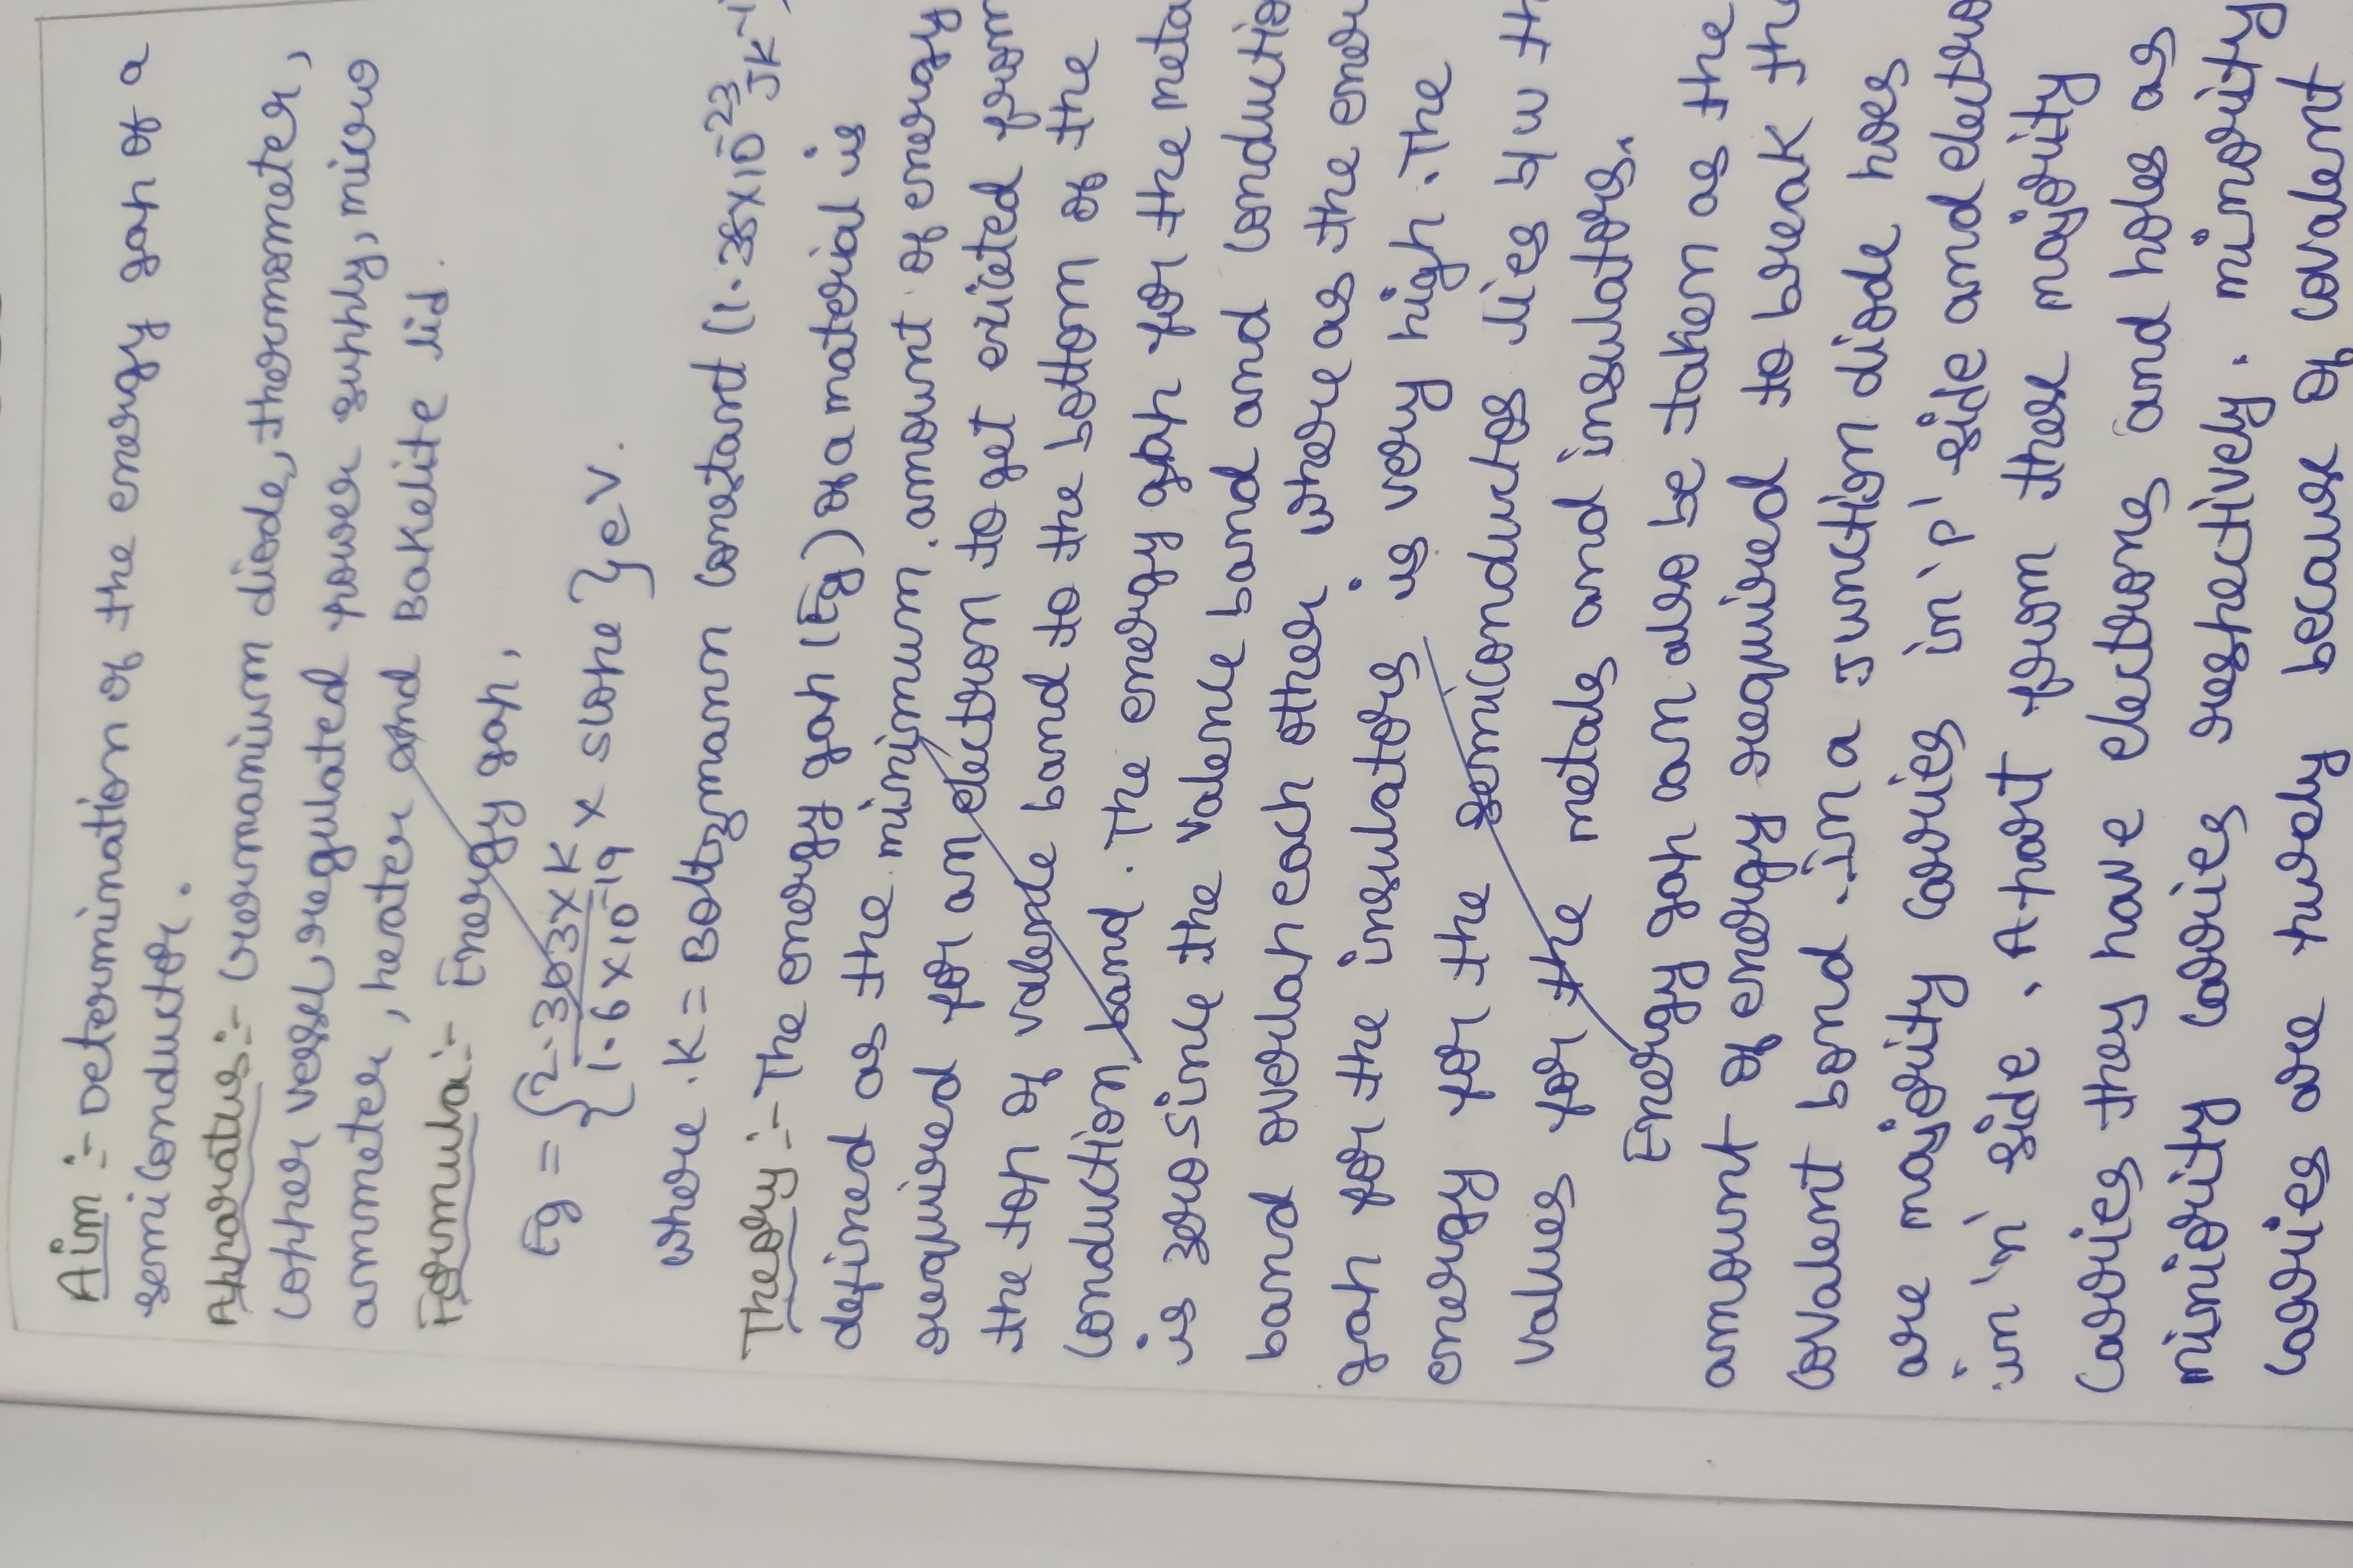 Aim :- Determination of the energy gap of a
semiconductor.
Apparatus :- Germanium diode, thermometer,
copper vessel, regulated power supply, micro
ammeter, heater and Bakelite lid.
Formula :- Energy gap,
Eg = { 2.303 x K / 1.6 x 10^-19 x slope } eV.
where K = Boltzmann constant (1.38x10^-23 JK^-1)
Theory :- The energy gap (Eg) of a material is
defined as the minimum amount of energy
required for an electron to get excited from
the top of valence band to the bottom of the
conduction band. The energy gap for the meta
is zero since the valence band and conductio
band overlap each other where as the ener
gap for the insulators is very high. The
energy for the semiconductos lies b/w th
values for the metals and insulators.
Energy gap can also be taken as the
amount of energy required to break the
covalent bond. In a junction diode hoes
are majority carries in 'p' side and electro
in 'n' side. Apart from these majority
carries they have electrons and holes as
minority carries respectively. minority
carries are purely because of covalent